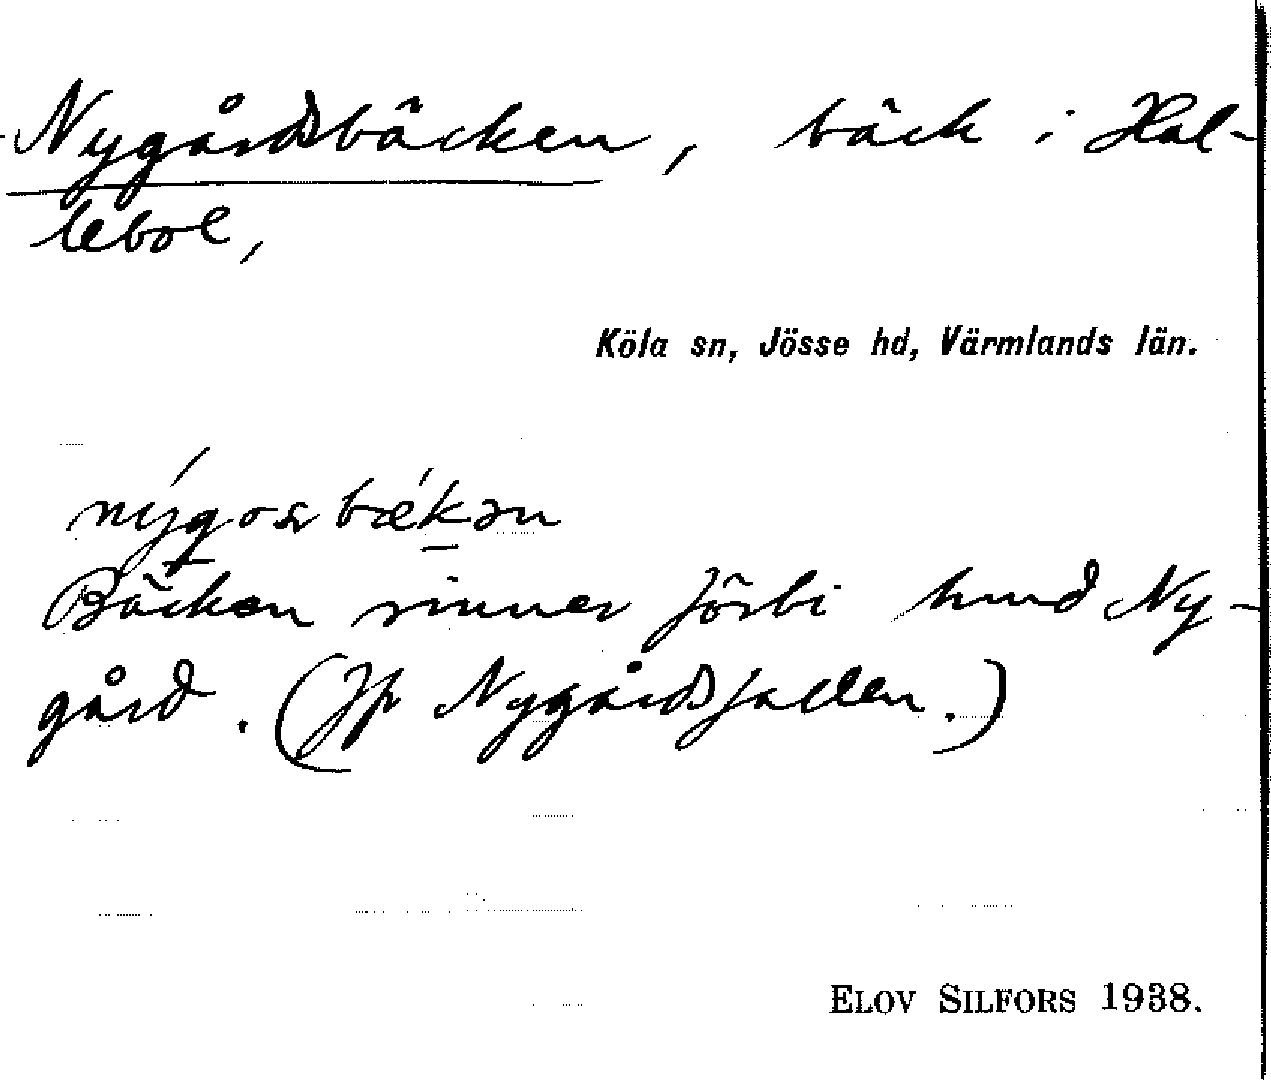 Nygårdsbäcken, bäck i Hal-
lebol,
Köla sn, Jösse hd, Värmlands län.
Bäcken rinner förbi hmd Ny-
gård. (Jfr Nygårdsfallen.)
ELOV SILFORS 1938.